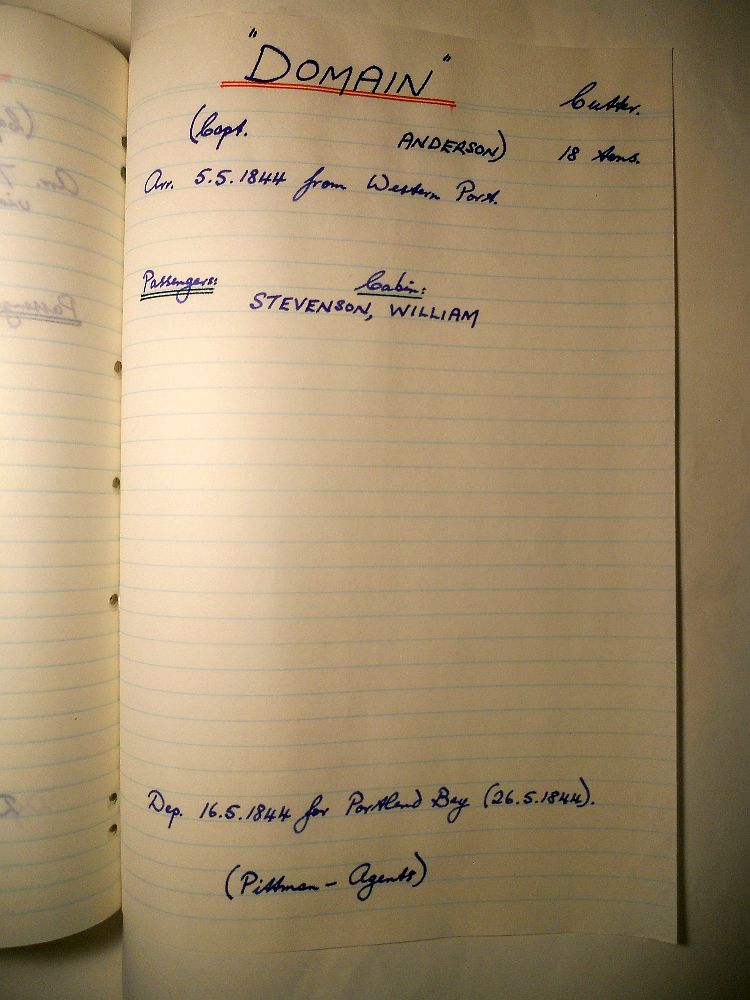 "DOMAIN"
Cutter.
(Capt. ANDERSON) 18 tons.
Arr. 5.5.1844 from Western Port.
Passengers: Cabin:
STEVENSON, WILLIAM
Dep. 16.5.1844 for Portland Bay (26.5.1844).
(Pittman - Agents)